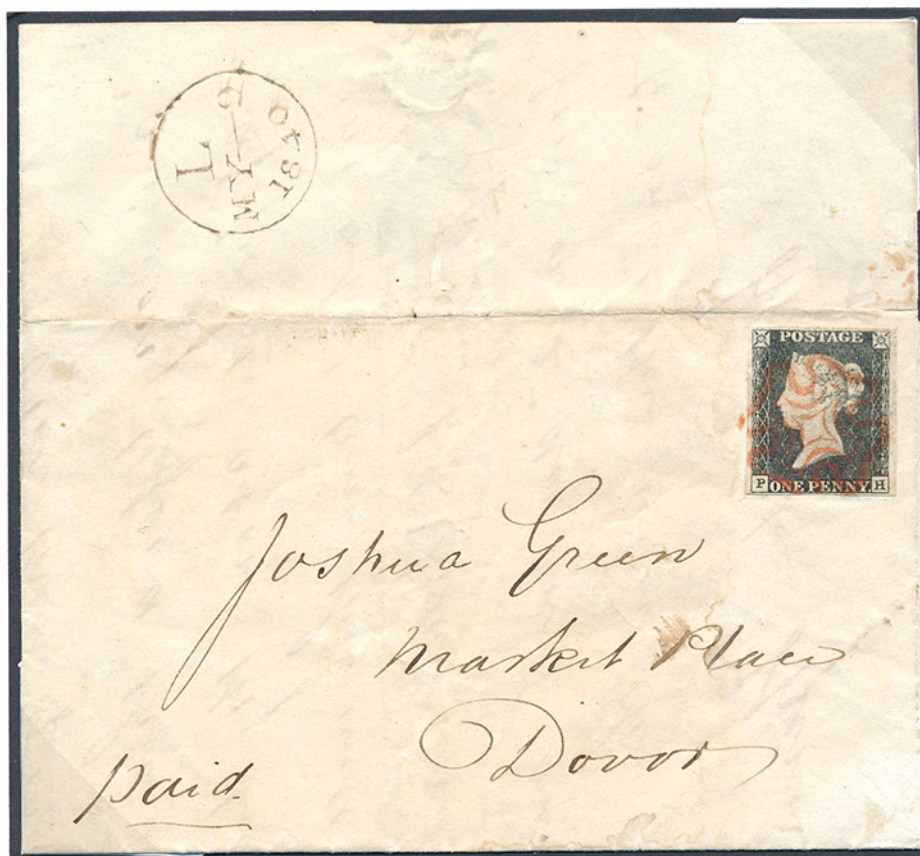 L
MY
1840
POSTAGE
P ONE PENNY H
Joshua Green
Market Place
Dovor
Paid